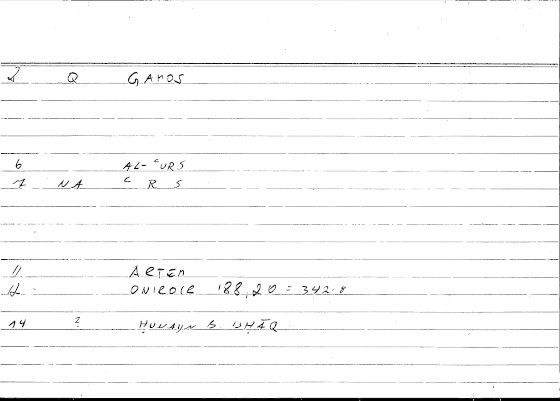 2 Q GAMOS
6 AL-ʿURS
7 NA ʿ R S
11 ARTEM
12 ONIROCR 188,20 = 342.8
14 ? ḤUNAYN B. ISḤĀQ